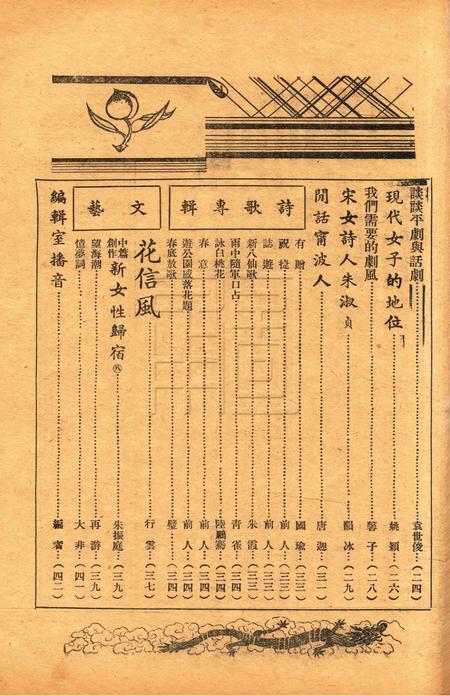 談談平劇與話劇……袁世俊…(二四)
現代女子的地位……姚穎…(二六)
我們需要的劇風……馨子…(二八)
宋女詩人朱淑貞……韻冰…(二九)
閒話甯波人……唐迦…(三一)
詩歌專輯
有贈……國瑜…(三三)
祝捷……前人…(三三)
誌遊……前人…(三三)
新八仙歌……朱霞…(三三)
雨中隨軍口占……青雀…(三四)
詠白桃花……陸鵬鶱…(三四)
春意……前人…(三四)
遊公園感落花題……前人…(三四)
春底放歌……壁…(三四)
文藝
花信風……行雲…(三七)
中篇創作 新女性歸宿㈧……朱振庭…(三九)
望海潮……再游…(三九)
憶夢詞……大非…(四一)
編輯室播音……編者…(四二)